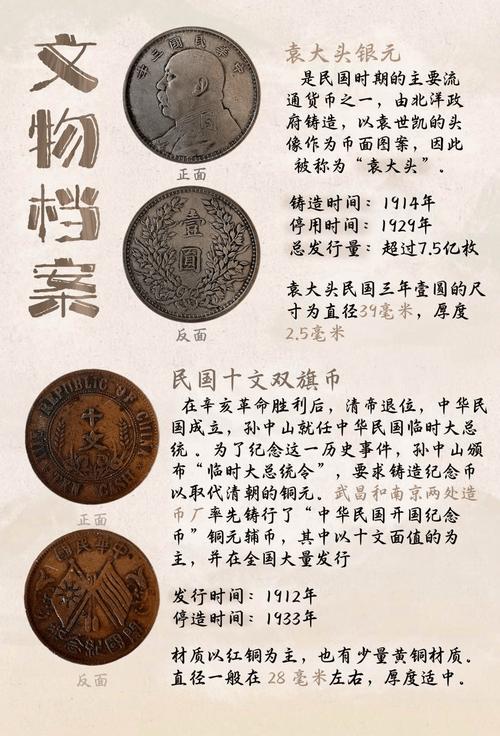 文物档案
中華民國三年
正面
壹圓
反面
袁大头银元
是民国时期的主要流
通货币之一，由北洋政
府铸造，以袁世凯的头
像作为币面图案，因此
被称为“袁大头”。
铸造时间：1914年
停用时间：1929年
总发行量：超过7.5亿枚
袁大头民国三年壹圆的尺
寸为直径39毫米，厚度
2.5毫米
THE REPUBLIC OF CHINA
十文
TEN CASH
正面
中華民國
開國紀念幣
反面
民国十文双旗币
在辛亥革命胜利后，清帝退位，中华民
国成立，孙中山就任中华民国临时大总
统。为了纪念这一历史事件，孙中山颁
布“临时大总统令”，要求铸造纪念币
以取代清朝的铜元。武昌和南京两处造
币厂率先铸行了“中华民国开国纪念
币”铜元辅币，其中以十文面值的为
主，并在全国大量发行
发行时间：1912年
停造时间：1933年
材质以红铜为主，也有少量黄铜材质。
直径一般在 28 毫米左右，厚度适中。